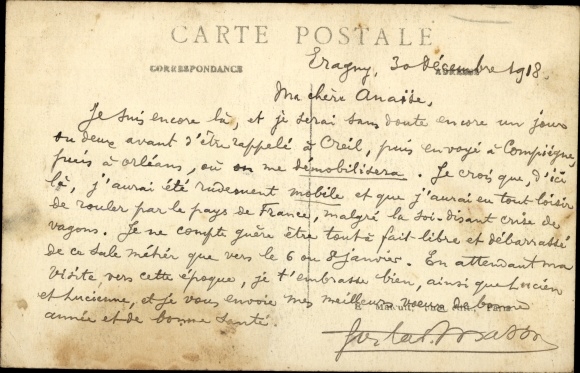 CARTE POSTALE
CORRESPONDANCE
ADRESSE
Eragny, 30 Décembre 1918.
Ma chère Anaïse,
Je suis encore là, et je serai sans doute encore un jours
ou deux avant d'être rappelé à Creil, puis envoyé à Compiègne,
puis à orléans, où on me démobilisera. Je crois que, d'ici
là, j'aurai été rudement mobile et que j'aurai eu tout loisir
de rouler par le pays de France, malgré la soi-disant crise de
vagons. Je ne compte guère être tout à fait libre et débarrassé
de ce sale métier que vers le 6 ou 8 Janvier. En attendant ma
visite vers cette époque, je t'embrasse bien, ainsi que Lucien
et Lucienne, et je vous envoie mes meilleurs voeux de bonne
année et de bonne santé.